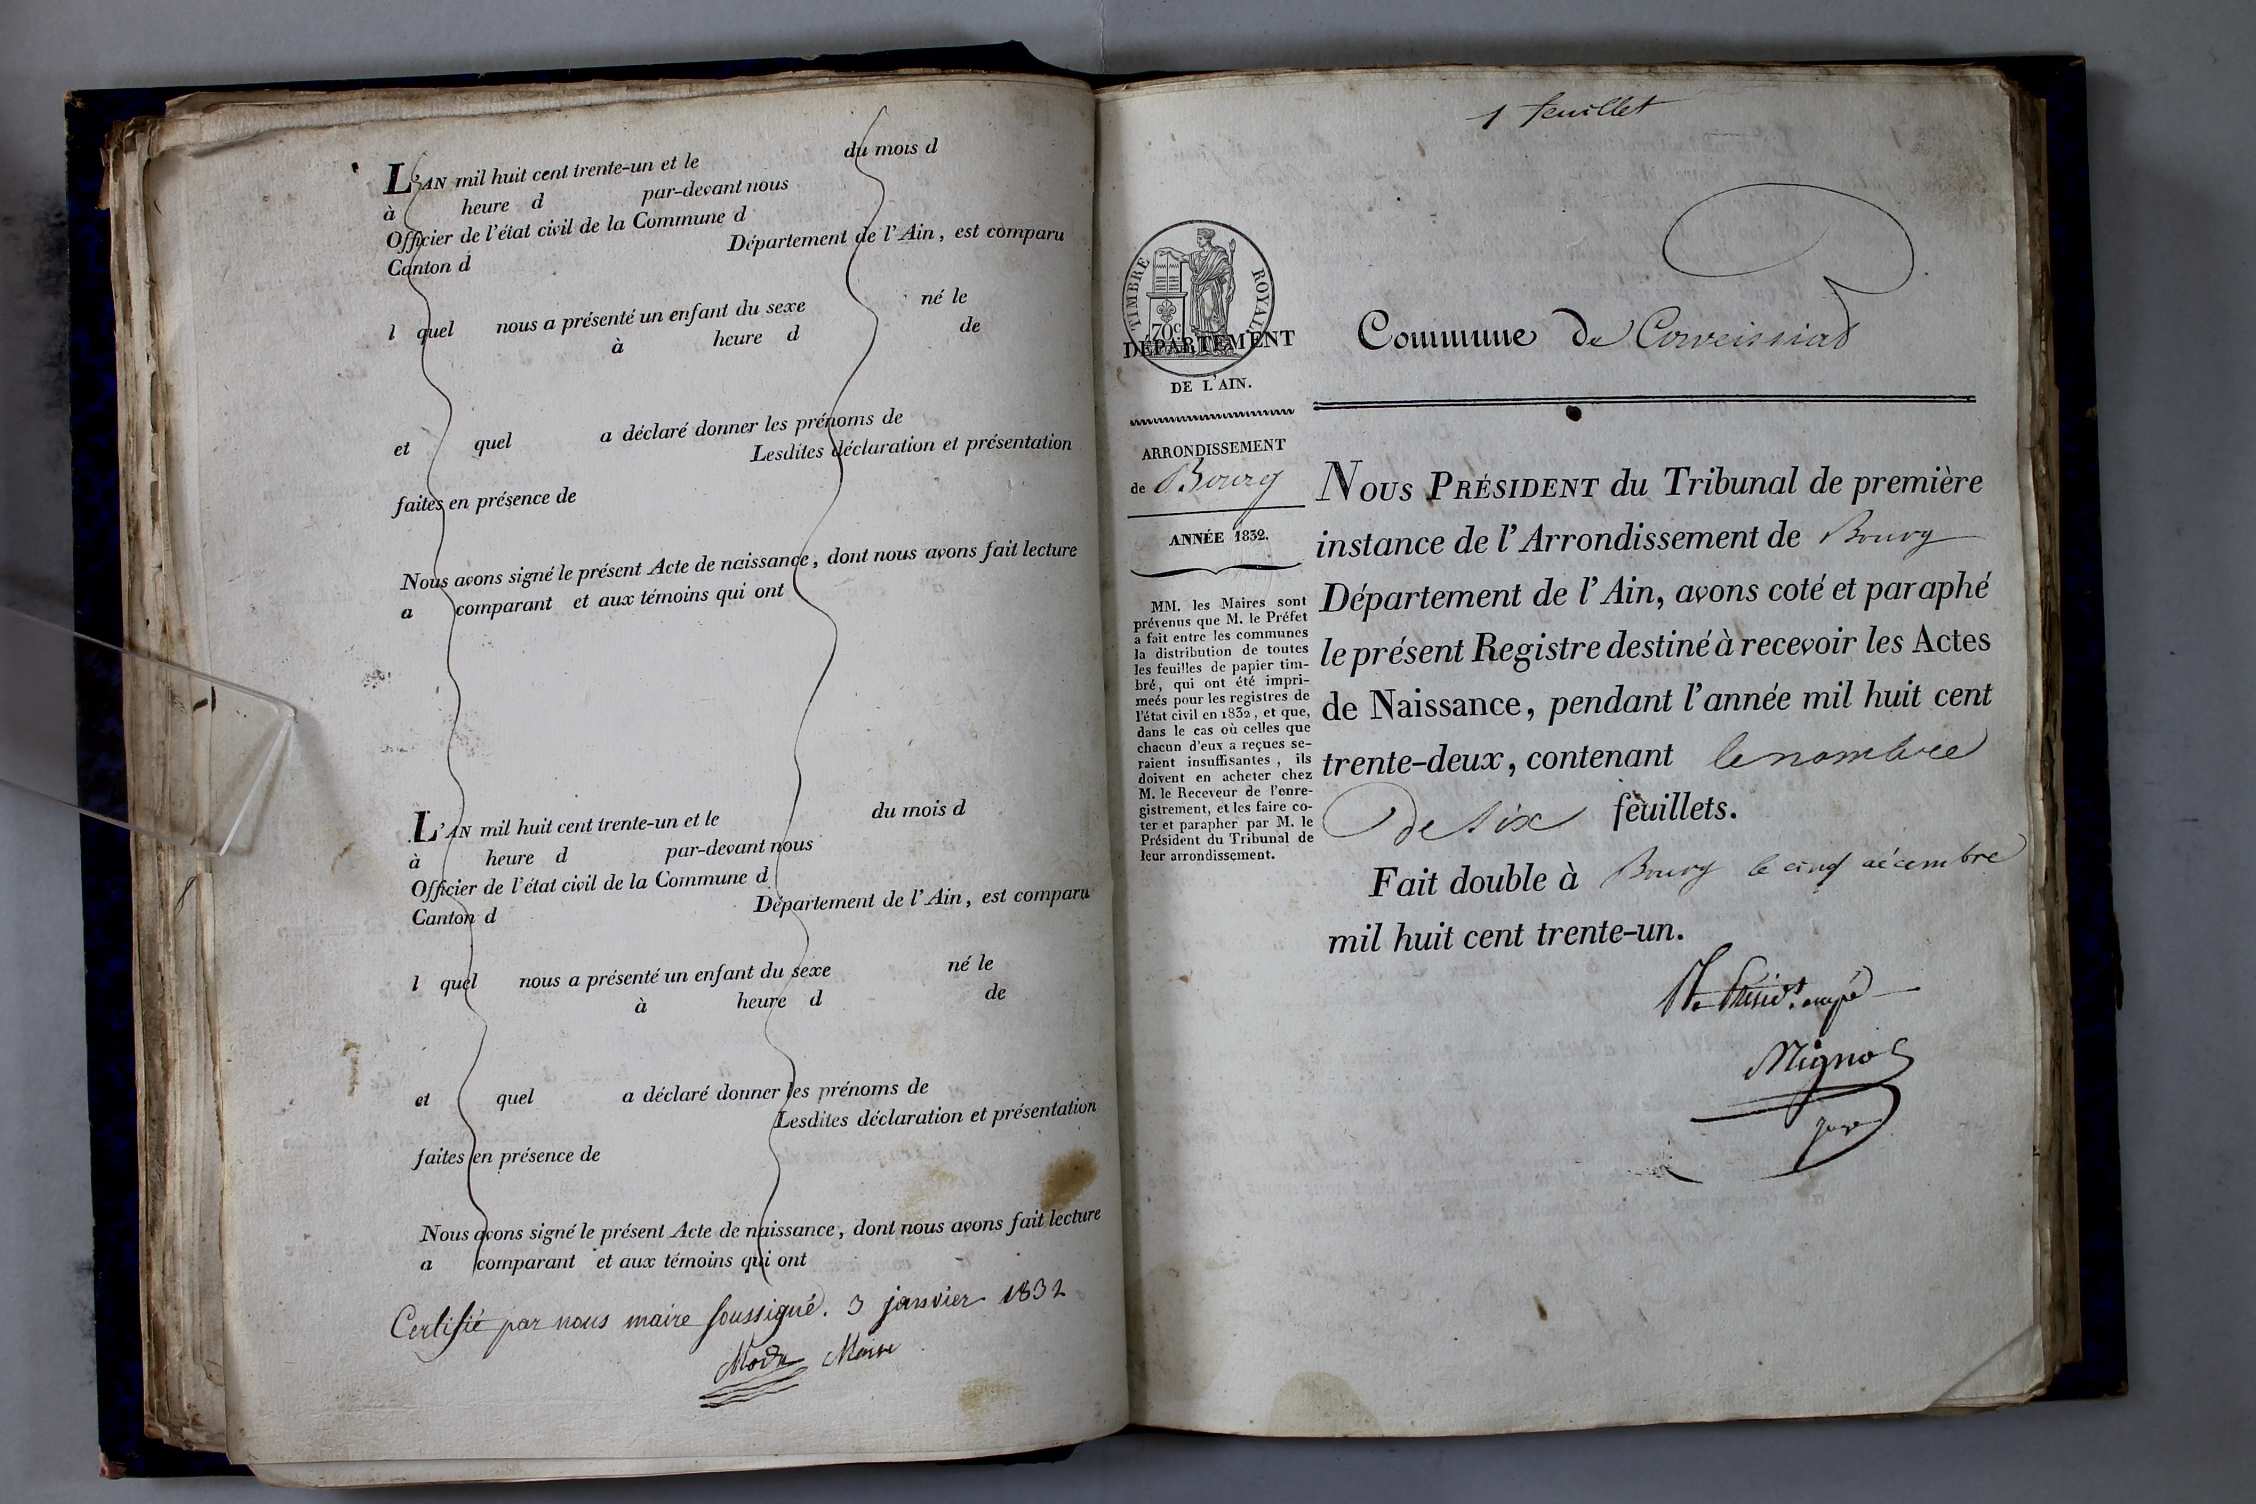 L'AN mil huit cent trente-un et le du mois d
à heure d par-devant nous
Officier de l'état civil de la Commune d
Canton d Département de l'Ain, est comparu
l quel nous a présenté un enfant du sexe né le
à heure d de
et quel a déclaré donner les prénoms de
Lesdites déclaration et présentation
faites en présence de
Nous avons signé le présent Acte de naissance, dont nous avons fait lecture
a comparant et aux témoins qui ont
L'AN mil huit cent trente-un et le du mois d
à heure d par-devant nous
Officier de l'état civil de la Commune d
Canton d Département de l'Ain, est comparu
l quel nous a présenté un enfant du sexe né le
à heure d de
et quel a déclaré donner les prénoms de
Lesdites déclaration et présentation
faites en présence de
Nous avons signé le présent Acte de naissance, dont nous avons fait lecture
a comparant et aux témoins qui ont
Certifié par nous maire soussigné. 3 janvier 1832
Maire
1 feuillet
TIMBRE ROYAL
70c
DÉPARTEMENT
DE L'AIN.
ARRONDISSEMENT
de Bourg
ANNÉE 1832.
MM. les Maires sont
prévenus que M. le Préfet
a fait entre les communes
la distribution de toutes
les feuilles de papier tim-
bré, qui ont été impri-
meés pour les registres de
l'état civil en 1832, et que,
dans le cas où celles que
chacun d'eux a reçues se-
raient insuffisantes, ils
doivent en acheter chez
M. le Receveur de l'enre-
gistrement, et les faire co-
ter et parapher par M. le
Président du Tribunal de
leur arrondissement.
Commune de Corveissiat
NOUS PRÉSIDENT du Tribunal de première
instance de l'Arrondissement de Bourg
Département de l'Ain, avons coté et paraphé
le présent Registre destiné à recevoir les Actes
de Naissance, pendant l'année mil huit cent
trente-deux, contenant le nombre
de six feuillets.
Fait double à Bourg le cinq décembre
mil huit cent trente-un.
Mignot
juge